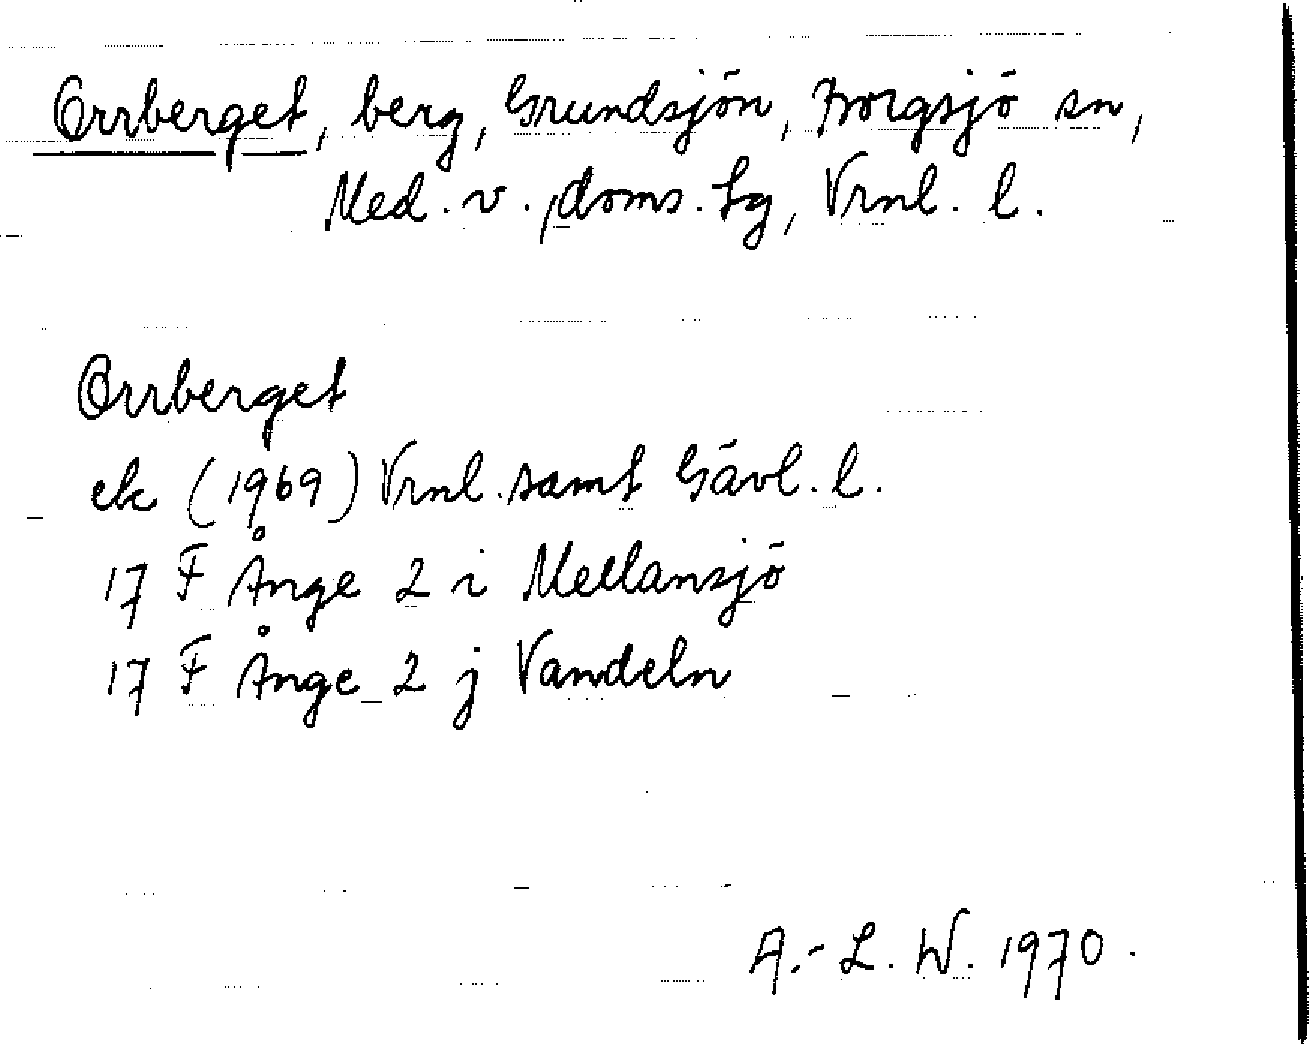 Orrberget, berg, Grundsjön, Borgsjö sn,
Med. v., doms. lg, Vrnl. l.
Orrberget
ek (1969) Vrnl. samt Gävl. l.
17 F Ånge 2 i Mellansjö
17 F Ånge 2 j Vandeln
A.-L. W. 1970.